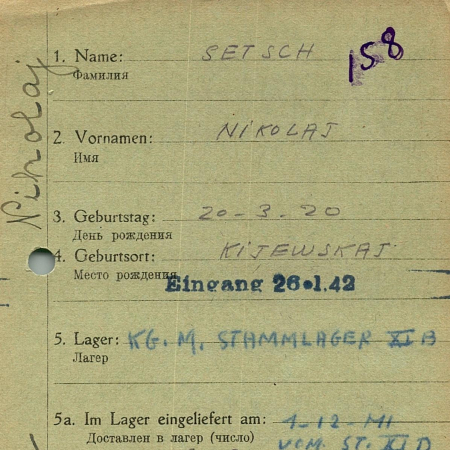 158
Nikolaj
1. Name: SETSCH
Фамилия
2. Vornamen: NIKOLAJ
Имя
3. Geburtstag: 20-3-20
День рождения
4. Geburtsort: KIJEWSKAJ
Место рождения
Eingang 26.1.42
5. Lager: KG. M. STAMMLAGER XI B
Лагер
5a. Im Lager eingeliefert am: 1-12-41
Доставлен в лагер (число)
VOM. ST. XI D